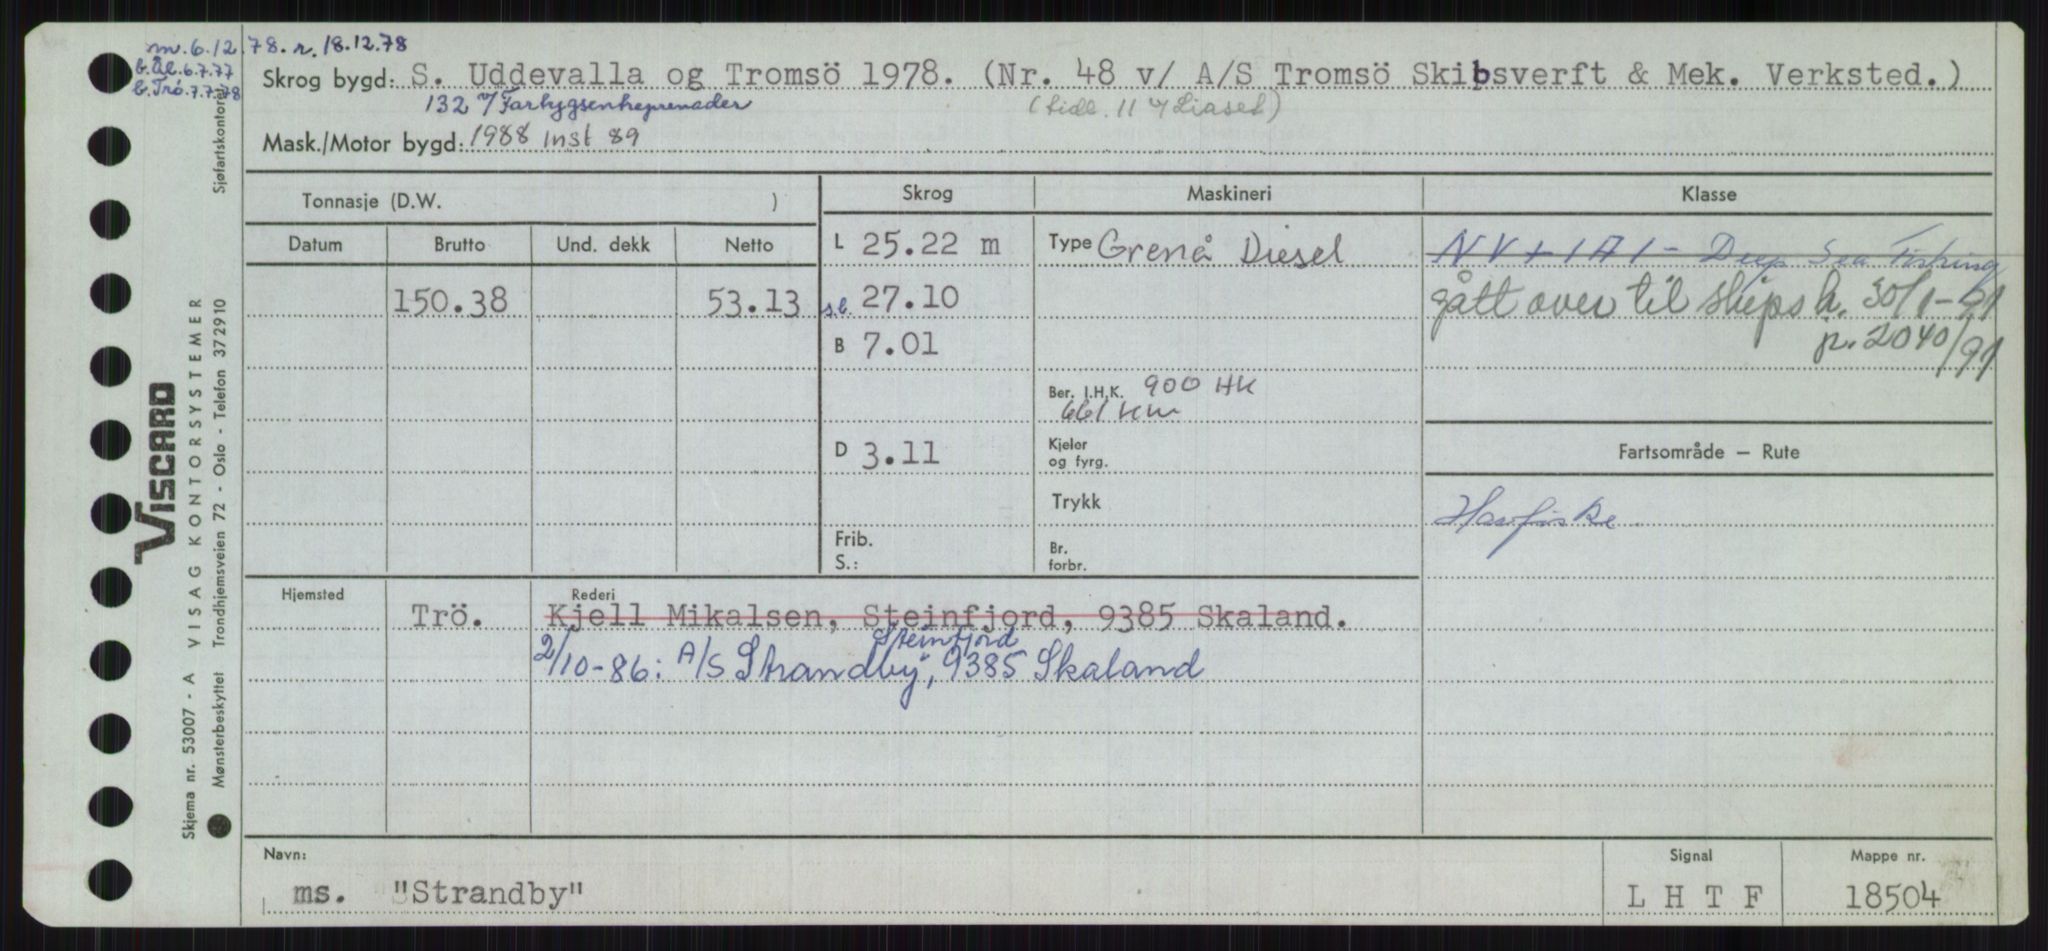 m. 6.12.78. r. 18.12.78
b.Ål.6.7.77
b.Trö.7.7.78
Skrog bygd: S. Uddevalla og Tromsö 1978. (Nr. 48 v/ A/S Tromsö Skibsverft & Mek. Verksted.)
132 v/
Mask./Motor bygd: 1988 inst 89
Tonnasje (D.W. )
Skrog
Maskineri
Klasse
Datum
Brutto
Und. dekk
Netto
L 25.22 m
Type Grenå Diesel
NV+1A1- Deep Sea Fishing
150.38
53.13
s.l. 27.10
gått over til skips h. 30/1-91
B 7.01
p. 2040/91
Ber. I.H.K. 900 HK
661 KW
D 3.11
Kjeler
og fyrg.
Fartsområde — Rute
Trykk
Havfiske
Frib.
S.:
Br.
forbr.
Hjemsted
Rederi
Trö.
Kjell Mikalsen, Steinfjord, 9385 Skaland.
Steinfjord
2/10-86: A/S Strandby, 9385 Skaland
Navn:
Signal
Mappe nr.
ms. "Strandby"
L H T F
18504
VISCARD
Skjema nr. 53007 - A VISAG KONTORSYSTEMER
Mønsterbeskyttet Trondhjemsveien 72 - Oslo - Telefon 372910 Sjøfartskontoret